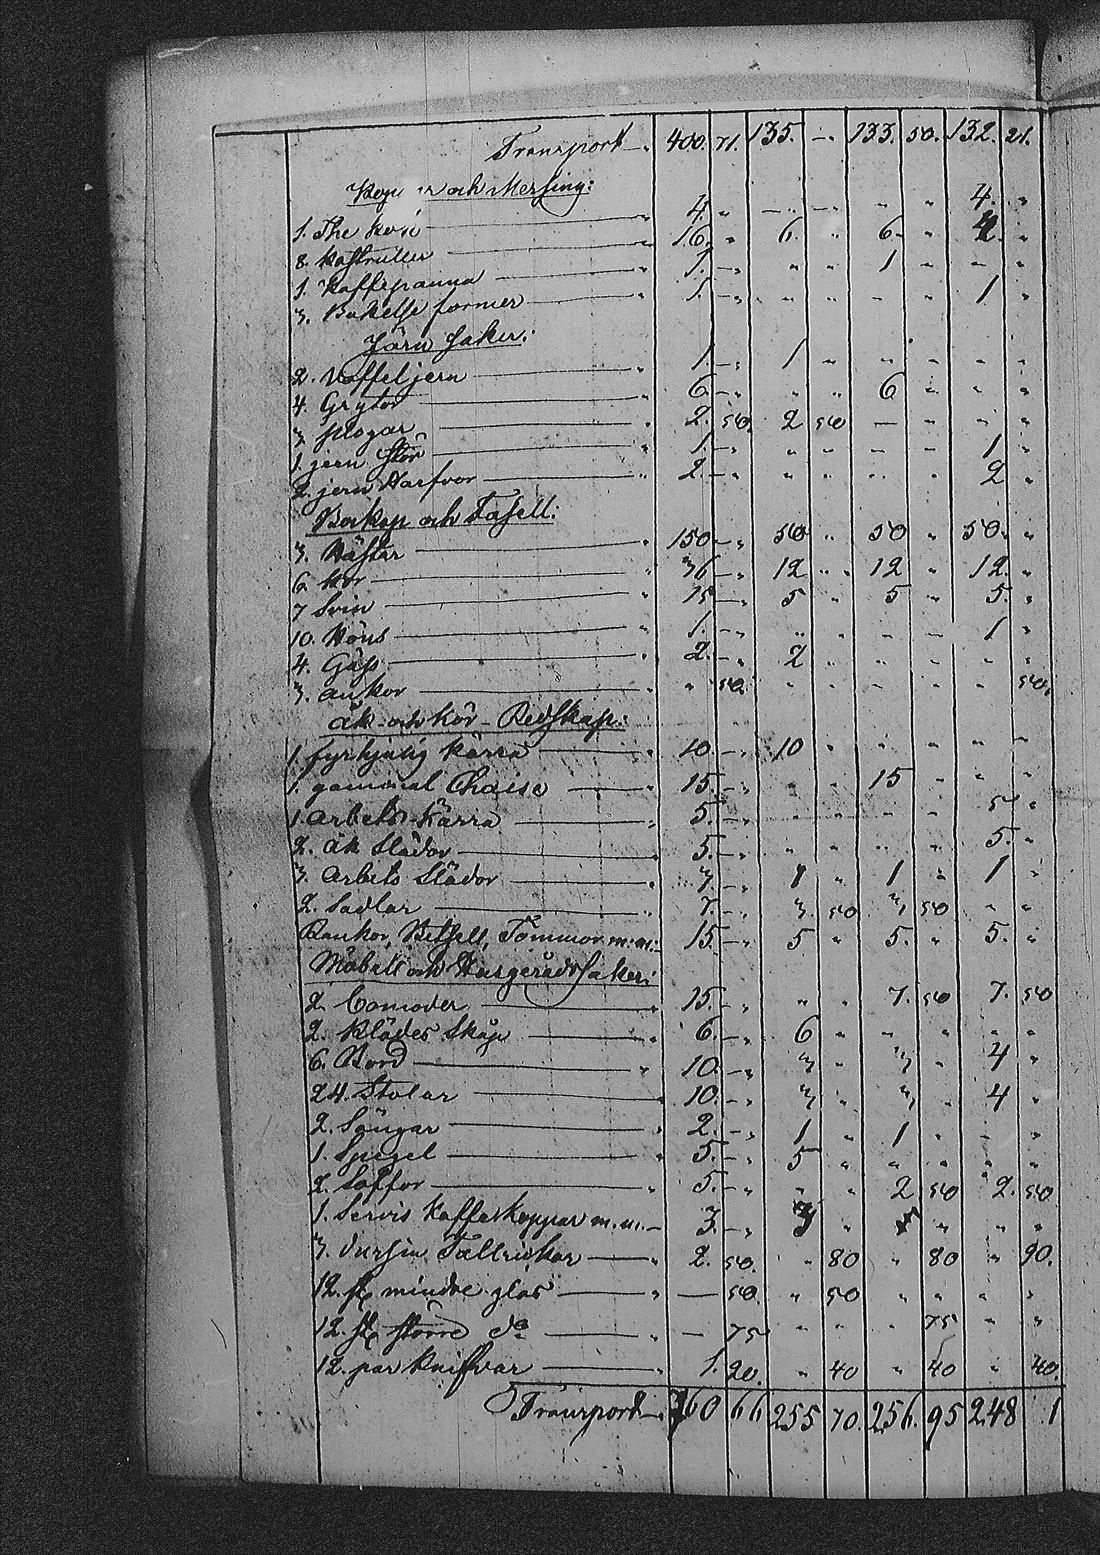 Transport 400. 71. 135. — 133. 50. 132. 21.
och Messing:
1. The 4. „ — „ — „ „ 4. „
8. Kastruller 16. „ 6. „ 6. „ „
1. Kaffepanna 1. — „ „ „ 1 „ — „
3. Bakelse former 1. — „ „ „ — „ 1 „
Järn saker:
2. Vaffeljern 1 — „ 1 „ „ „ „ „
4. Grytor 6 — „ „ „ 6 „ „ „
3 plogar 2. 50. 2 50 — „ „ „
1. jern Stör 1 — „ „ „ — — 1 „
2. jern Harfvor 2. — „ „ „ „ „ 2 „
Boskap och Fasell:
3. Hästar 150 — „ 50 „ 50 „ 50. „
6. Kor 36 — „ 12 „ 12 „ 12. „
7 Svin 15 — „ 5 „ 5 „ 5. „
10. Höns 1. — „ „ „ „ — 1 „
4. Gäss 2. — „ 2 „ „ „ „ „
3. ankor „ 50. „ „ „ „ „ 50.
åk- och Kör-Redskap:
1. fyrhjulig Kärra 10 — „ 10 „ „ „ „ „
1. gammal Chaise 15. — „ „ „ 15 „ „ „
1. Arbets-Kärra 5. — „ „ „ „ „ 5 „
2. åk Slädor 5. — „ „ „ „ „ 5. „
3. Arbets Slädor 3. — „ 1 „ 1 „ 1 „
2. Sadlar 7. — „ 3. 50 3 50 „ „
Rankor, Betsell, Tömmor m.m. 15. — „ 5 „ 5. „ 5. „
Möbell och Husgerådssaker:
2. Comoder 15. — „ „ „ 7. 50 7. 50
2. Klädes Skåp 6. — „ 6 „ „ „ „ „
6. Bord 10. — „ 3 „ 3 „ 4 „
24. Stolar 10. — „ 3 „ 3 „ 4 „
2. Sängar 2. — „ 1 „ 1 „ „ „
1. Spegel 5. — „ 5 „ „ „ „ „
2. Soffor 5. — „ „ „ 2 50 2. 50
1. Servis Kaffekoppar m.m. 3. — „ 3 „ „ „ „
3. dussin Tallrickar 2. 50. „ 80 „ 80 „ 90.
12. st mindre glas — 50. „ 50 „ „ „ „
12. st större do — 75 „ „ „ 75 „ „
12. par Knifvar 1. 20. „ 40 „ 40 „ 40.
Transport 760 66 255 70. 256. 95 248 1